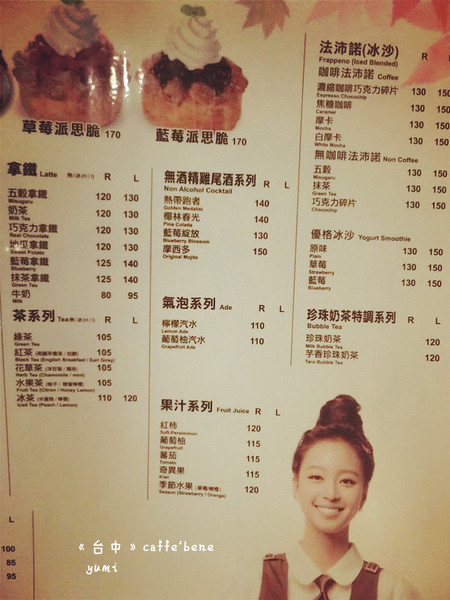 草莓派思脆 170
藍莓派思脆 170
拿鐵 Latte 熱/冰(H/I) R L
五穀拿鐵 120 130
Misugaru
奶茶 120 130
Milk Tea
巧克力拿鐵 120 130
Real Chocolate
地瓜拿鐵 120 130
Sweet Potato
藍莓拿鐵 125 140
Blueberry
抹茶拿鐵 125 140
Green Tea
牛奶 80 95
Milk
茶系列 Tea 熱/冰(H/I) R L
綠茶 105
Green Tea
紅茶 (英國早餐茶/伯爵) 105
Black Tea (English Breakfast / Earl Grey)
花草茶 (洋甘菊/薄荷) 105
Herb Tea (Chamomile / mint)
水果茶 (柚子/蜂蜜檸檬) 105
Fruit Tea (Citron / Honey Lemon)
冰茶 (水蜜桃/檸檬) 110 120
Iced Tea (Peach / Lemon)
無酒精雞尾酒系列 R L
Non Alcohol Cocktail
熱帶跑者 140
Golden Medalist
椰林春光 140
Pina Colada
藍莓綻放 130
Blueberry Blossom
摩西多 150
Original Mojito
氣泡系列 Ade R L
檸檬汽水 110
Lemon Ade
葡萄柚汽水 110
Grapefruit Ade
果汁系列 Fruit Juice R L
紅柿 120
Soft-Persimmon
葡萄柚 115
Grapefruit
蕃茄 115
Tomato
奇異果 115
Kiwi
季節水果 (草莓/柳橙) 120
Season (Strawberry / Orange)
法沛諾(冰沙) R L
Frappeno (Iced Blended)
咖啡法沛諾 Coffee
濃縮咖啡巧克力碎片 130 150
Espresso Chocochip
焦糖咖啡 130 150
Caramel
摩卡 130 150
Mocha
白摩卡 130 150
White Mocha
無咖啡法沛諾 Non Coffee
五穀 130 150
Misugaru
抹茶 130 150
Green Tea
巧克力碎片 130 150
Chocochip
優格冰沙 Yogurt Smoothie
原味 130 150
Plain
草莓 130 150
Strawberry
藍莓 130 150
Blueberry
珍珠奶茶特調系列 R L
Bubble Tea
珍珠奶茶 120
Milk Bubble Tea
芋香珍珠奶茶 120
Taro Bubble Tea
L
100
85
95
《台中》caffe'bene
yumi